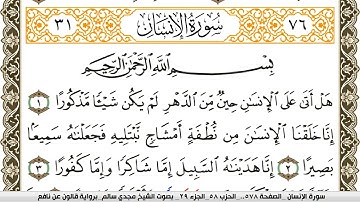 ٧٦ سُورَةُ الإِنسَانِ ٣١
بِسْمِ اللَّهِ الرَّحْمَٰنِ الرَّحِيمِ
هَلْ أَتَىٰ عَلَى الْإِنسَٰنِ حِينٌ مِّنَ الدَّهْرِ لَمْ يَكُن شَيْـًٔا مَّذْكُورًا ١
إِنَّا خَلَقْنَا الْإِنسَٰنَ مِن نُّطْفَةٍ أَمْشَاجٍ نَّبْتَلِيهِ فَجَعَلْنَٰهُ سَمِيعًا
بَصِيرًا ٢ إِنَّا هَدَيْنَٰهُ السَّبِيلَ إِمَّا شَاكِرًا وَإِمَّا كَفُورًا ٣
سورة الانسان الصفحة ٥٧٨.. الحزب ٥٨_الجزء ٢٩_ بصوت الشيخ مجدي سالم_ برواية قالون عن نافع